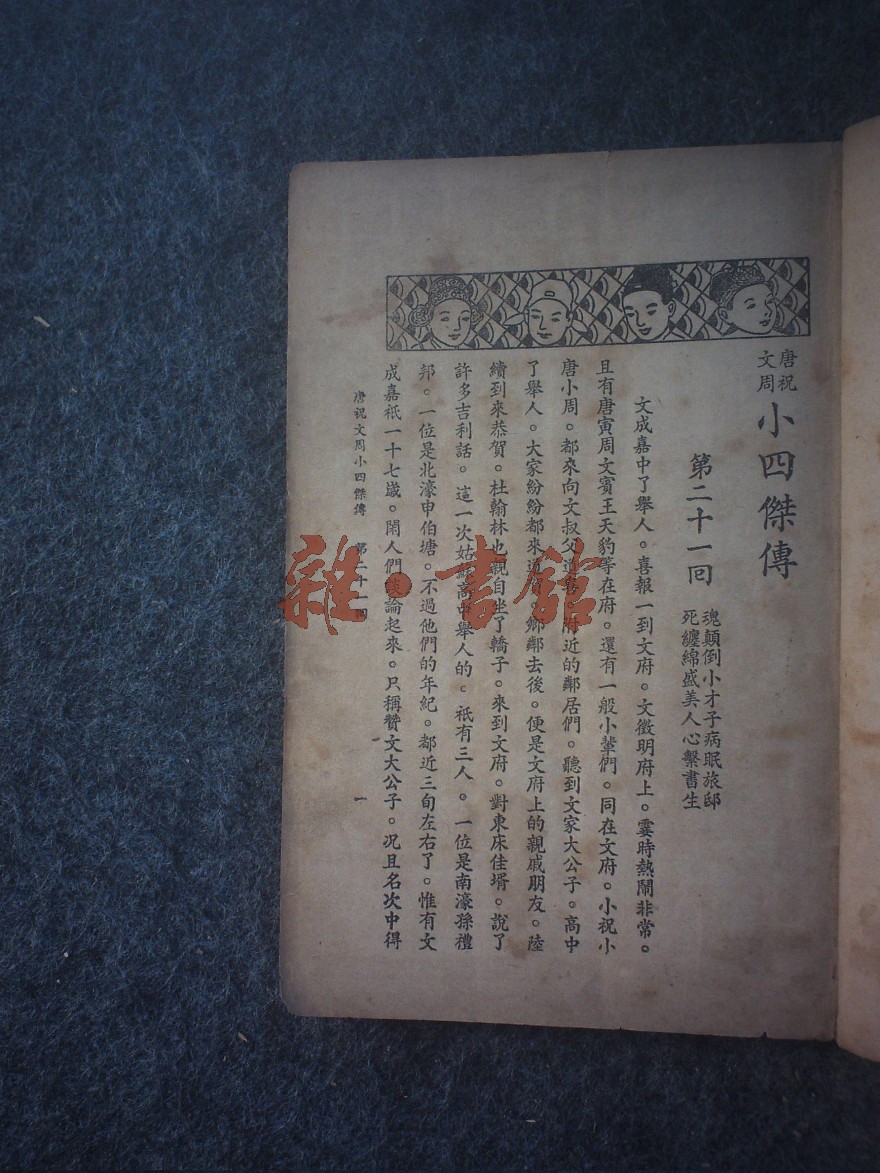 唐祝
文周
小四傑傳
第二十一回
魂顛倒小才子病眠旅邸
死纏綿盛美人心繫書生
文成嘉中了舉人。喜報一到文府。文徵明府上。霎時熱鬧非常。
且有唐寅周文賓王天豹等在府。還有一般小輩們。同在文府。小祝小
唐小周。都來向文叔父道喜。附近的鄰居們。聽到文家大公子。高中
了舉人。大家紛紛都來道賀。鄉鄰去後。便是文府上的親戚朋友。陸
續到來恭賀。杜翰林也親自坐了轎子。來到文府。對東床佳壻。說了
許多吉利話。這一次姑蘇高中舉人的。祇有三人。一位是南濠孫禮
邦。一位是北濠申伯塘。不過他們的年紀。都近三旬左右了。惟有文
成嘉祇一十七歲。閑人們談論起來。只稱贊文大公子。况且名次中得
唐祝文周小四傑傳 第二十一回 一
雜·書館